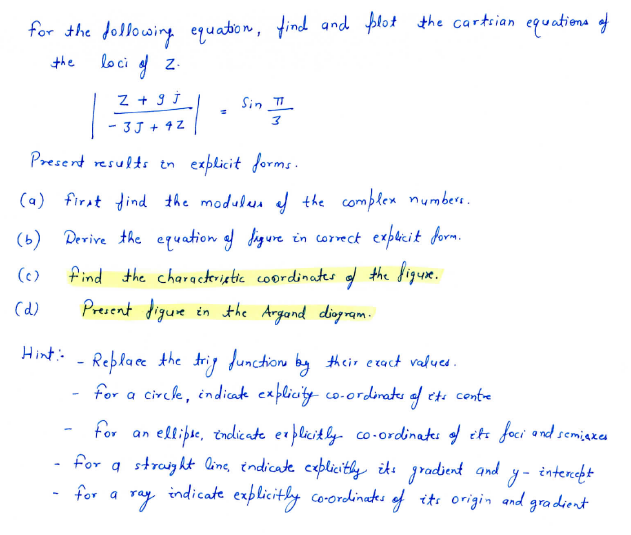 for the following equation, find and plot the cartsian equations of
the loci of Z.
| Z + 9 j / - 3 J + 4 Z | = Sin π / 3
Present results in explicit forms.
(a) first find the modulus of the complex numbers.
(b) Derive the equation of figure in correct explicit form.
(c) find the characteristic coordinates of the figure.
(d) Present figure in the Argand diagram.
Hint:- - Replace the trig function by their exact values.
- for a circle, indicate explicity co-ordinates of its centre
- for an ellipse, indicate explicitly co-ordinates of its foci and semiaxes
- for a straight line, indicate explicitly its gradient and y-intercept
- for a ray indicate explicitly co-ordinates of its origin and gradient